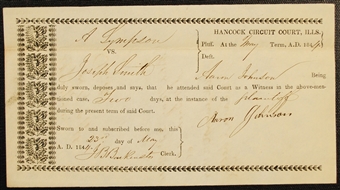 HANCOCK CIRCUIT COURT, ILLS.
A Tympson
VS.
Joseph Smith
Plff. At the May Term, A.D. 1844
Deft.
Aaron Johnson Being
duly sworn, deposes, and says, that he attended said Court as a Witness in the above-men-
tioned suit, Two days, at the instance of the plaintiff
during the present term of said Court.
Aaron Johnson
Sworn to and subscribed before me, this
23d day of May
A. D. 1844. Clerk.